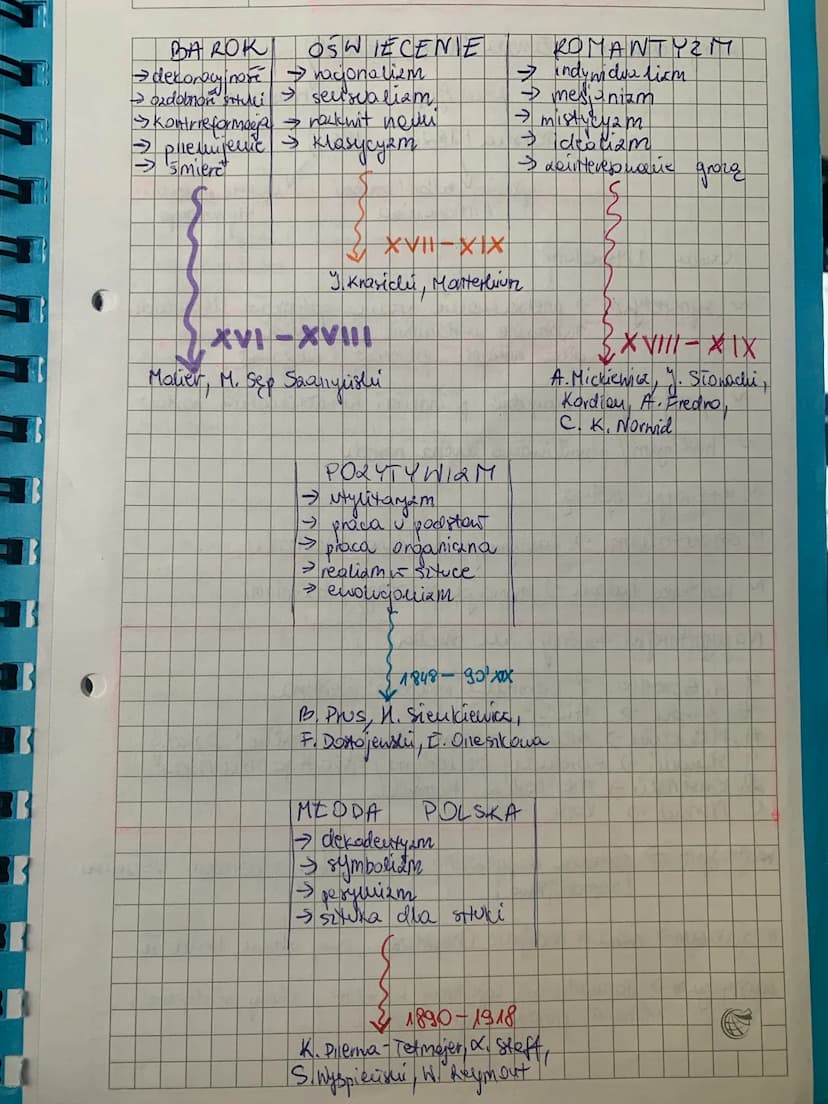 BAROK
→ dekoracyjność
→ ozdobność sztuki
→ kontrreformacja
→ przemijanie
→ śmierć
XVI – XVIII
Molier, M. Sęp Szarzyński
OŚWIECENIE
→ racjonalizm
→ sensualizm
→ rozkwit nauki
→ klasycyzm
XVII – XIX
J. Krasicki, Monteskiusz
ROMANTYZM
→ indywidualizm
→ mesjanizm
→ mistycyzm
→ idealizm
→ zainteresowanie grozą
XVIII – XIX
A. Mickiewicz, J. Słowacki,
Kordian, A. Fredro,
C. K. Norwid
POZYTYWIZM
→ utylitaryzm
→ praca u podstaw
→ praca organiczna
→ realizm w sztuce
→ ewolucjonizm
1848 – 90' XIX
B. Prus, H. Sienkiewicz,
F. Dostojewski, E. Orzeszkowa
MŁODA POLSKA
→ dekadentyzm
→ symbolizm
→ pesymizm
→ sztuka dla sztuki
1890 – 1918
K. Przerwa-Tetmajer, L. Staff,
S. Wyspiański, W. Reymont